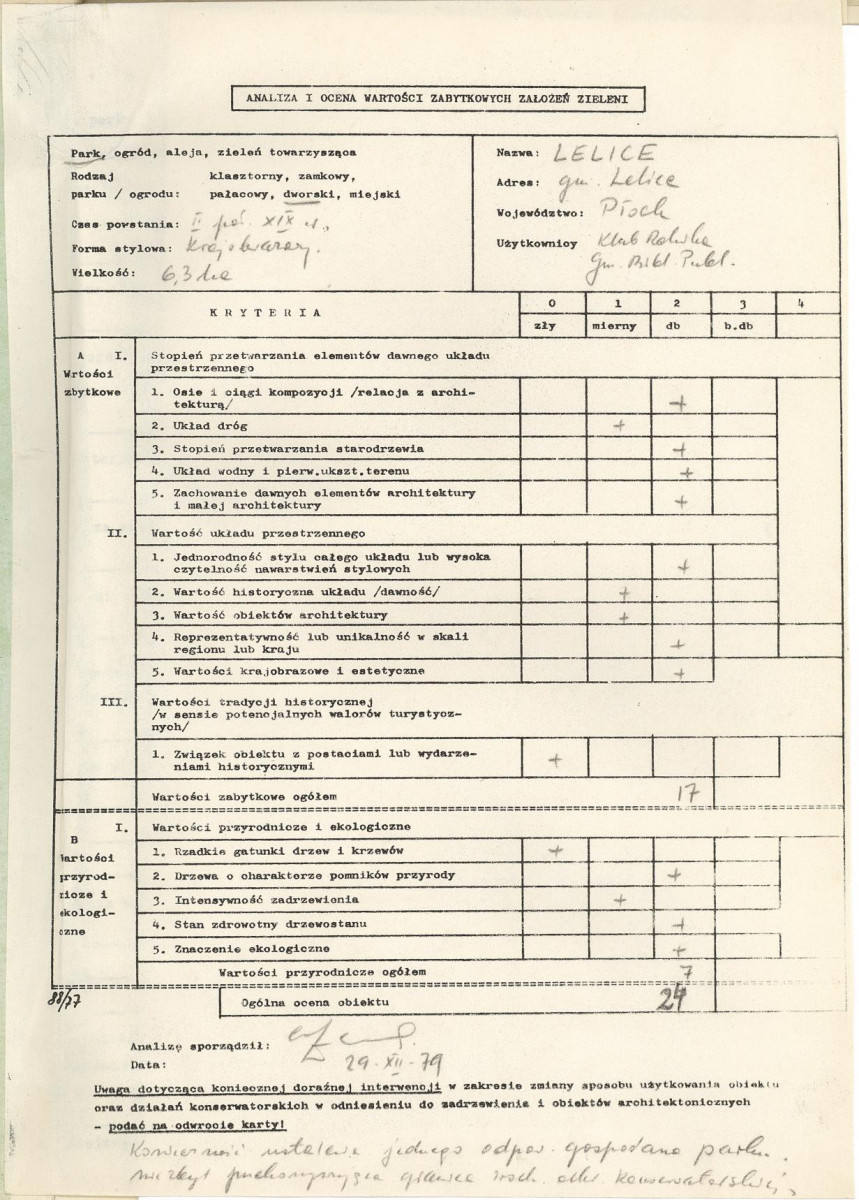 ANALIZA I OCENA WARTOŚCI ZABYTKOWYCH ZAŁOŻEŃ ZIELENI
Park, ogród, aleja, zieleń towarzysząca
Rodzaj klasztorny, zamkowy,
parku / ogrodu: pałacowy, dworski, miejski
Czas powstania: II poł. XIX w.
Forma stylowa: Krajobrazowy.
Wielkość: 6,3 ha
Nazwa: LELICE
Adres: gm. Lelice
Województwo: Płock
Użytkownicy Klub Rolnika
Gm. Bibl. Publ.
KRYTERIA
0 1 2 3 4
zły mierny db b.db
A I. Stopień przetwarzania elementów dawnego układu
Wrtości przestrzennego
zbytkowe
1. Osie i ciągi kompozycji /relacja z archi-
tekturą/ +
2. Układ dróg +
3. Stopień przetwarzania starodrzewia +
4. Układ wodny i pierw.ukszt.terenu +
5. Zachowanie dawnych elementów architektury
i małej architektury +
II. Wartość układu przestrzennego
1. Jednorodność stylu całego układu lub wysoka
czytelność nawarstwień stylowych +
2. Wartość historyczna układu /dawność/ +
3. Wartość obiektów architektury +
4. Reprezentatywność lub unikalność w skali
regionu lub kraju +
5. Wartości krajobrazowe i estetyczne +
III. Wartości tradycji historycznej
/w sensie potencjalnych walorów turystycz-
nych/
1. Związek obiektu z postaciami lub wydarze-
niami historycznymi +
Wartości zabytkowe ogółem 17
B I. Wartości przyrodnicze i ekologiczne
Wartości
przyrod-
nicze i
ekologi-
czne
1. Rzadkie gatunki drzew i krzewów +
2. Drzewa o charakterze pomników przyrody +
3. Intensywność zadrzewienia +
4. Stan zdrowotny drzewostanu +
5. Znaczenie ekologiczne +
Wartości przyrodnicze ogółem 7
88/77 Ogólna ocena obiektu 24
Analizę sporządził:
Data: 29-XII-79
Uwaga dotycząca koniecznej doraźnej interwencji w zakresie zmiany sposobu użytkowania obiektu
oraz działań konserwatorskich w odniesieniu do zadrzewienia i obiektów architektonicznych
- podać na odwrocie karty!
Konieczność ustalenia jednego odpow. gospodarza parku.
granica wsch. konserwatorskiej.